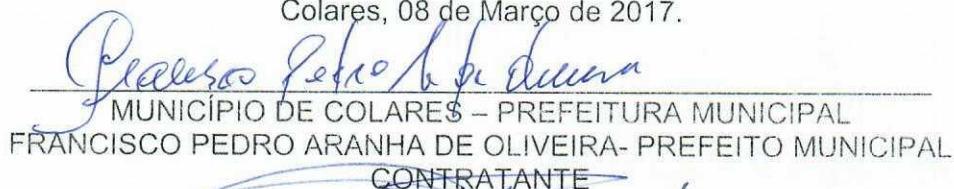 Colares, 08 de Março de 2017.
Francisco Pedro A de Oliveira
MUNICÍPIO DE COLARES – PREFEITURA MUNICIPAL
FRANCISCO PEDRO ARANHA DE OLIVEIRA- PREFEITO MUNICIPAL
CONTRATANTE